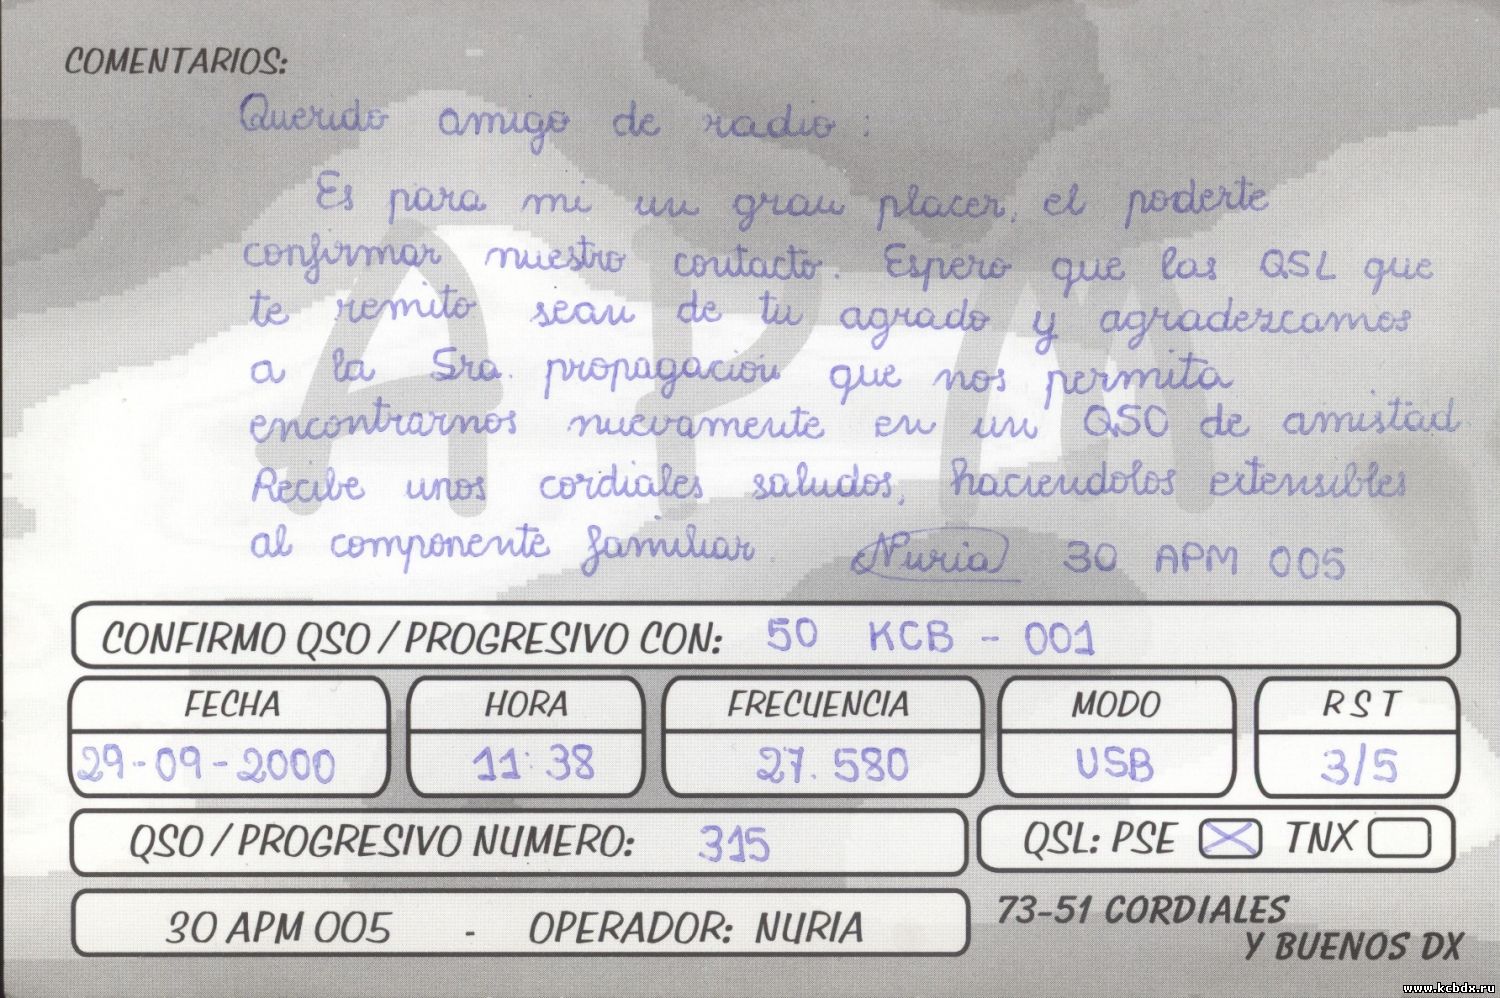 COMENTARIOS:
Querido amigo de radio :
Es para mi un gran placer, el poderte
confirmar nuestro contacto. Espero que las QSL que
te remito sean de tu agrado y agradezcamos
a la Sra. propagación que nos permita
encontrarnos nuevamente en un QSO de amistad.
Recibe unos cordiales saludos, haciendolos extensibles
al componente familiar. Nuria 30 APM 005
APM
CONFIRMO QSO / PROGRESIVO CON: 50 KCB - 001
FECHA HORA FRECUENCIA MODO RST
29-09-2000 11:38 27.580 USB 3/5
QSO / PROGRESIVO NUMERO: 315 QSL: PSE TNX
30 APM 005 - OPERADOR: NURIA 73-51 CORDIALES
Y BUENOS DX
www.kcbdx.ru